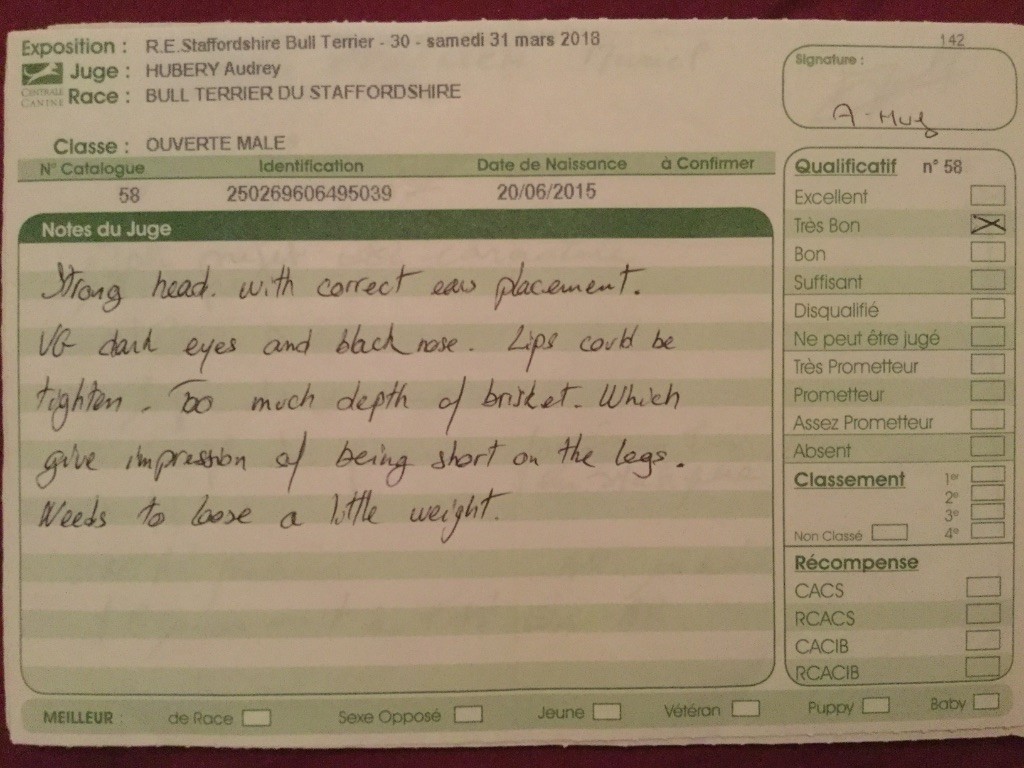 142
Exposition : R.E.Staffordshire Bull Terrier - 30 - samedi 31 mars 2018
Juge : HUBERY Audrey
CENTRALE CANINE
Race : BULL TERRIER DU STAFFORDSHIRE
Signature :
A. Hub
Classe : OUVERTE MALE
N° Catalogue Identification Date de Naissance à Confirmer
58 250269606495039 20/06/2015
Notes du Juge
Strong head. with correct ear placement.
VG dark eyes and black nose. Lips could be
tighten. Too much depth of brisket. Which
give impression of being short on the legs.
Needs to loose a little weight.
Qualificatif n° 58
Excellent
Très Bon
Bon
Suffisant
Disqualifié
Ne peut être jugé
Très Prometteur
Prometteur
Assez Prometteur
Absent
Classement 1er
2e
3e
Non Classé 4e
Récompense
CACS
RCACS
CACIB
RCACIB
MEILLEUR : de Race Sexe Opposé Jeune Vétéran Puppy Baby